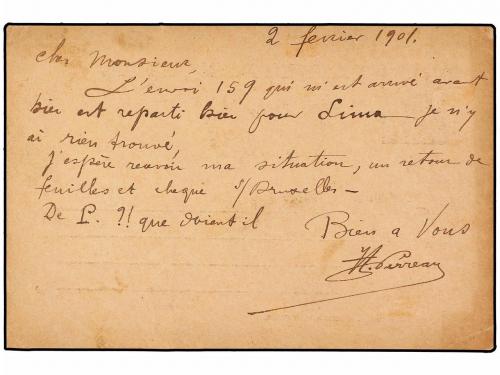 2 fevrier 1901.
cher Monsieur,
L'envoi 159 qui m'est arrivé avant
hier est reparti hier pour Lima je n'y
ai rien trouvé,
j'espère revoir ma situation, un retour de
feuilles et cheque s/Bruxelles —
De P. ?! que doient il
Bien a Vous
H. Perreau